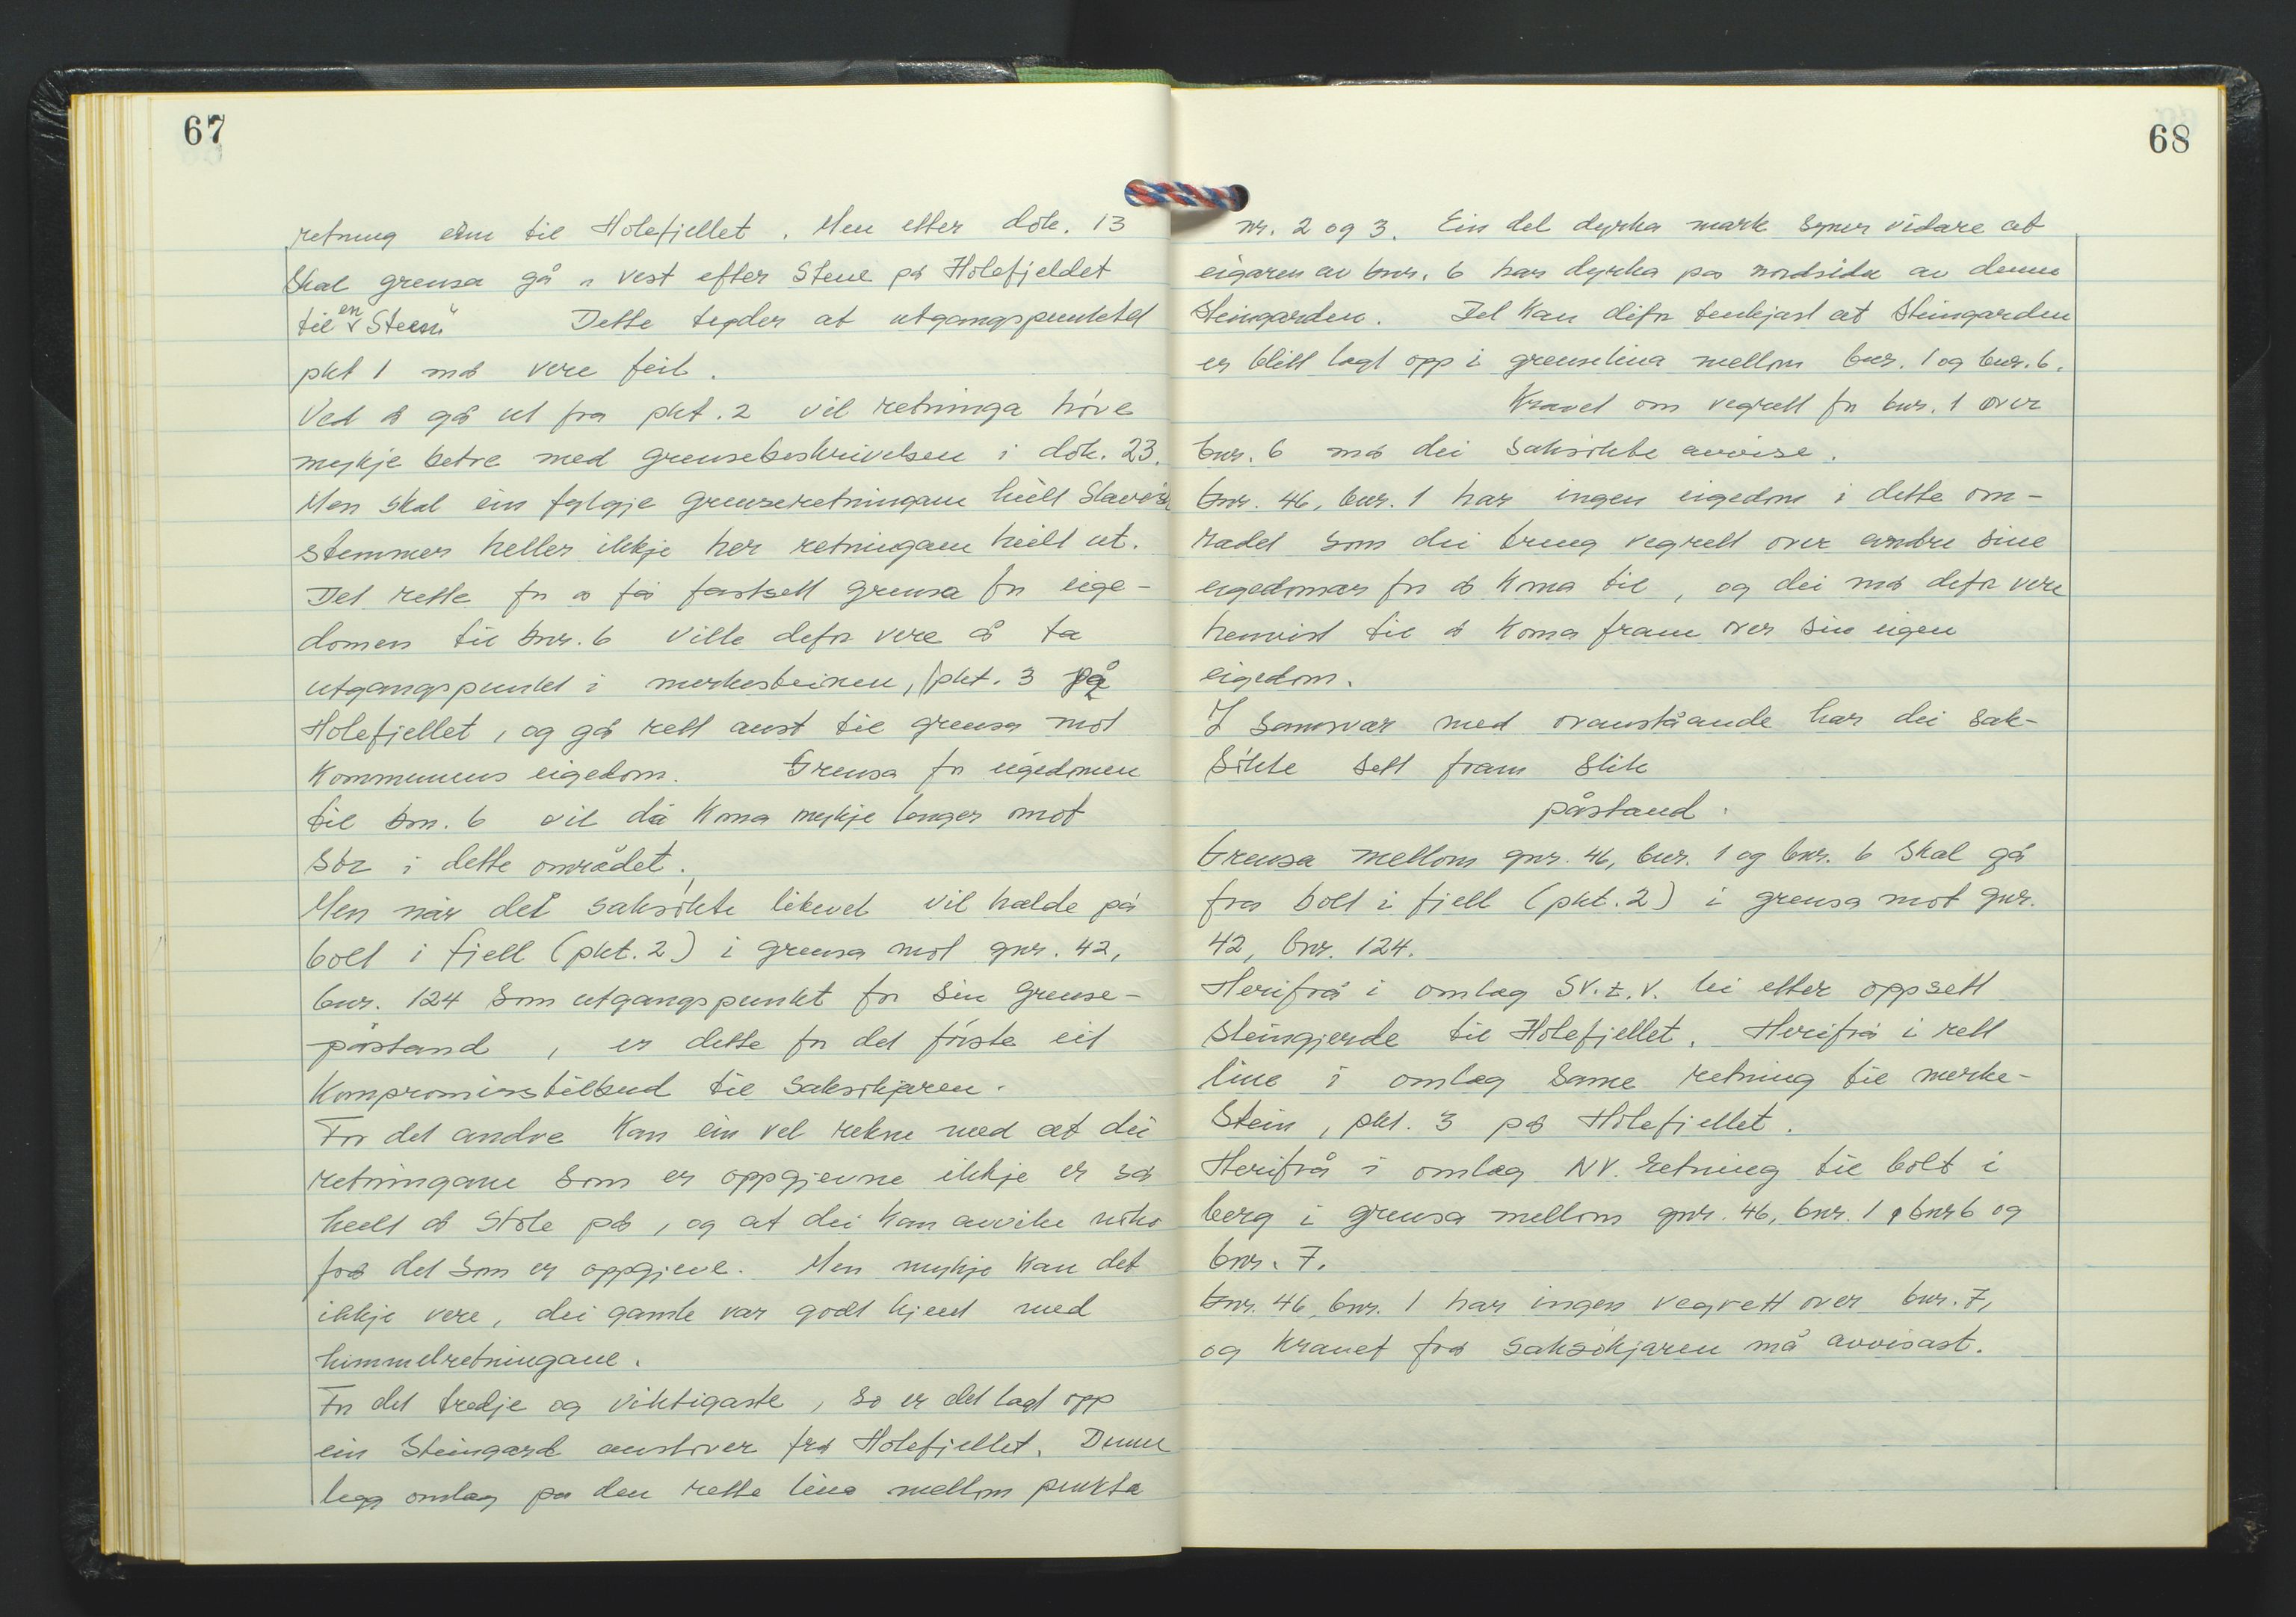 67
retning enn til Holefjellet. Men etter dok. 13
skal grensa gå " vest efter Stene på Holefjeldet
til en Steen" Dette tyder at utgangspunktet
pkt 1 må vere feil.
Ved å gå ut fra pkt. 2 vil retninga høve
mykje betre med grensebeskrivelsen i dok. 23.
Men skal ein fylgje grenseretningane heilt slavisk
stemmer heller ikkje her retningane heilt ut.
Det rette for å få fastsett grensa for eige-
domen til bnr. 6 ville defor vere å ta
utgangspunkt i merkesteinen, pkt. 3 på
Holefjellet, og gå rett aust til grensa mot
kommunens eigedom. Grensa for eigedomen
til bnr. 6 vil då koma mykje lenger mot
sør i dette området.
Men når dei saksøkte likevel vil halde på
bolt i fjell (pkt. 2) i grensa mot gnr. 42,
bnr. 124 som utgangspunkt for sin grense-
påstand, er dette for det første eit
kompromisstilbud til saksøkjaren.
For det andre kan ein vel rekne med at dei
retningane som er oppgjevne ikkje er så
heilt å stole på, og at dei kan avvike noko
frå det som er oppgjeve. Men mykje kan det
ikkje vere, dei gamle var godt kjent med
himmelretningane.
For det tredje og viktigaste, so er det lagt opp
ein steingard austover frå Holefjellet. Denne
legg omlag på den rette lina mellom punkta
68
nr. 2 og 3. Ein del dyrka mark syner vidare at
eigaren av bnr. 6 har dyrka på nordsida av denne
steingarden. Det kan difor tenkjast at steingarden
er blitt lagt opp i grenselina mellom bnr. 1 og bnr. 6.
Kravet om vegrett for bnr. 1 over
bnr. 6 må dei saksøkte avvise.
Gnr. 46, bnr. 1 har ingen eigedom i dette om-
radet som dei treng vegrett over andre sine
eigedomar for å koma til, og dei må defor vere
henvist til å koma fram over sin eigen
eigedom.
I samsvar med ovanståande har dei sak-
søkte sett fram slik
påstand:
Grensa mellom gnr. 46, bnr. 1 og bnr. 6 skal gå
fra bolt i fjell (pkt. 2) i grensa mot gnr.
42, bnr. 124.
Herifrå i omlag SV.t.V. lei etter oppsett
steingjerde til Holefjellet. Herifrå i rett
line i omlag same retning til merke-
stein, pkt. 3 på Holefjellet.
Herifrå i omlag NV. retning til bolt i
berg i grensa mellom gnr. 46, bnr. 1, bnr 6 og
bnr. 7.
Gnr. 46, bnr. 1 har ingen vegrett over bnr. 7,
og kravet frå saksøkjaren må avvisast.